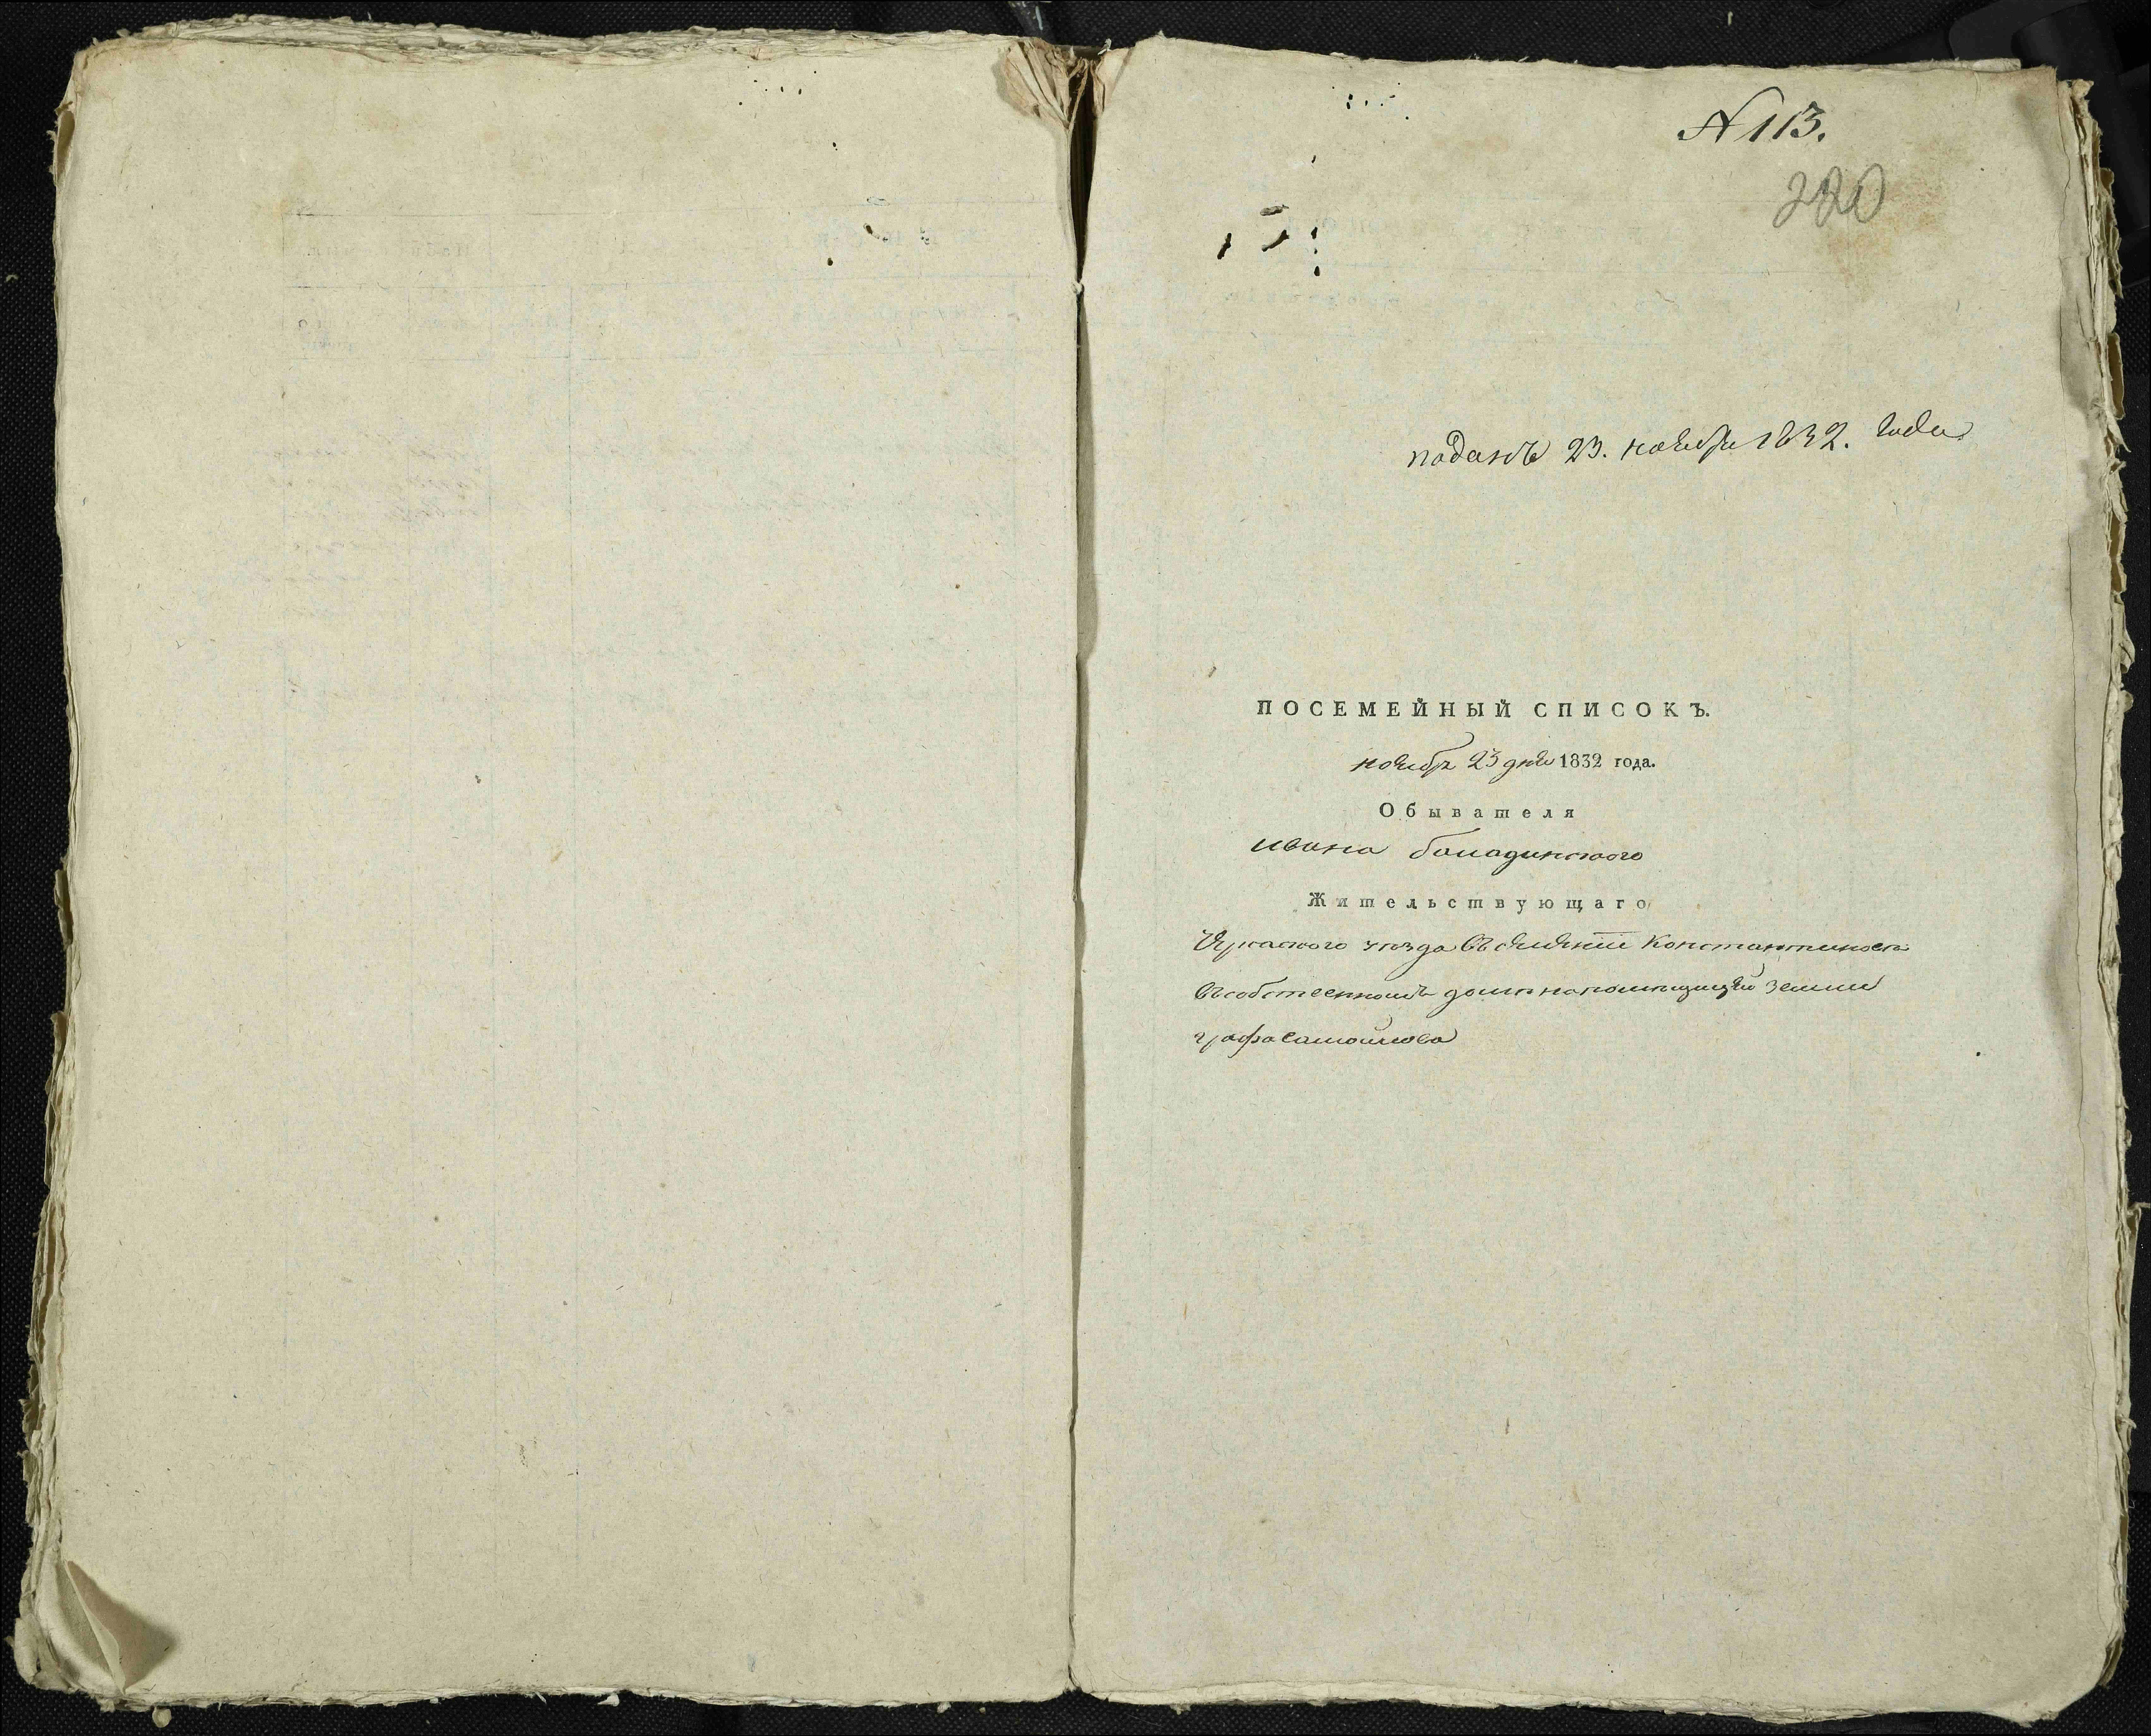 N 113.
280
поданъ 23. ноября 1832. года
ПОСЕМЕЙНЫЙ СПИСОКЪ.
ноября 23 дня 1832 года.
Обывателя
ивана
Жительствующаго
Черкаского уезда въ селении Константиновке
въ собственномъ доме на помещицей земли
графа Самойлова